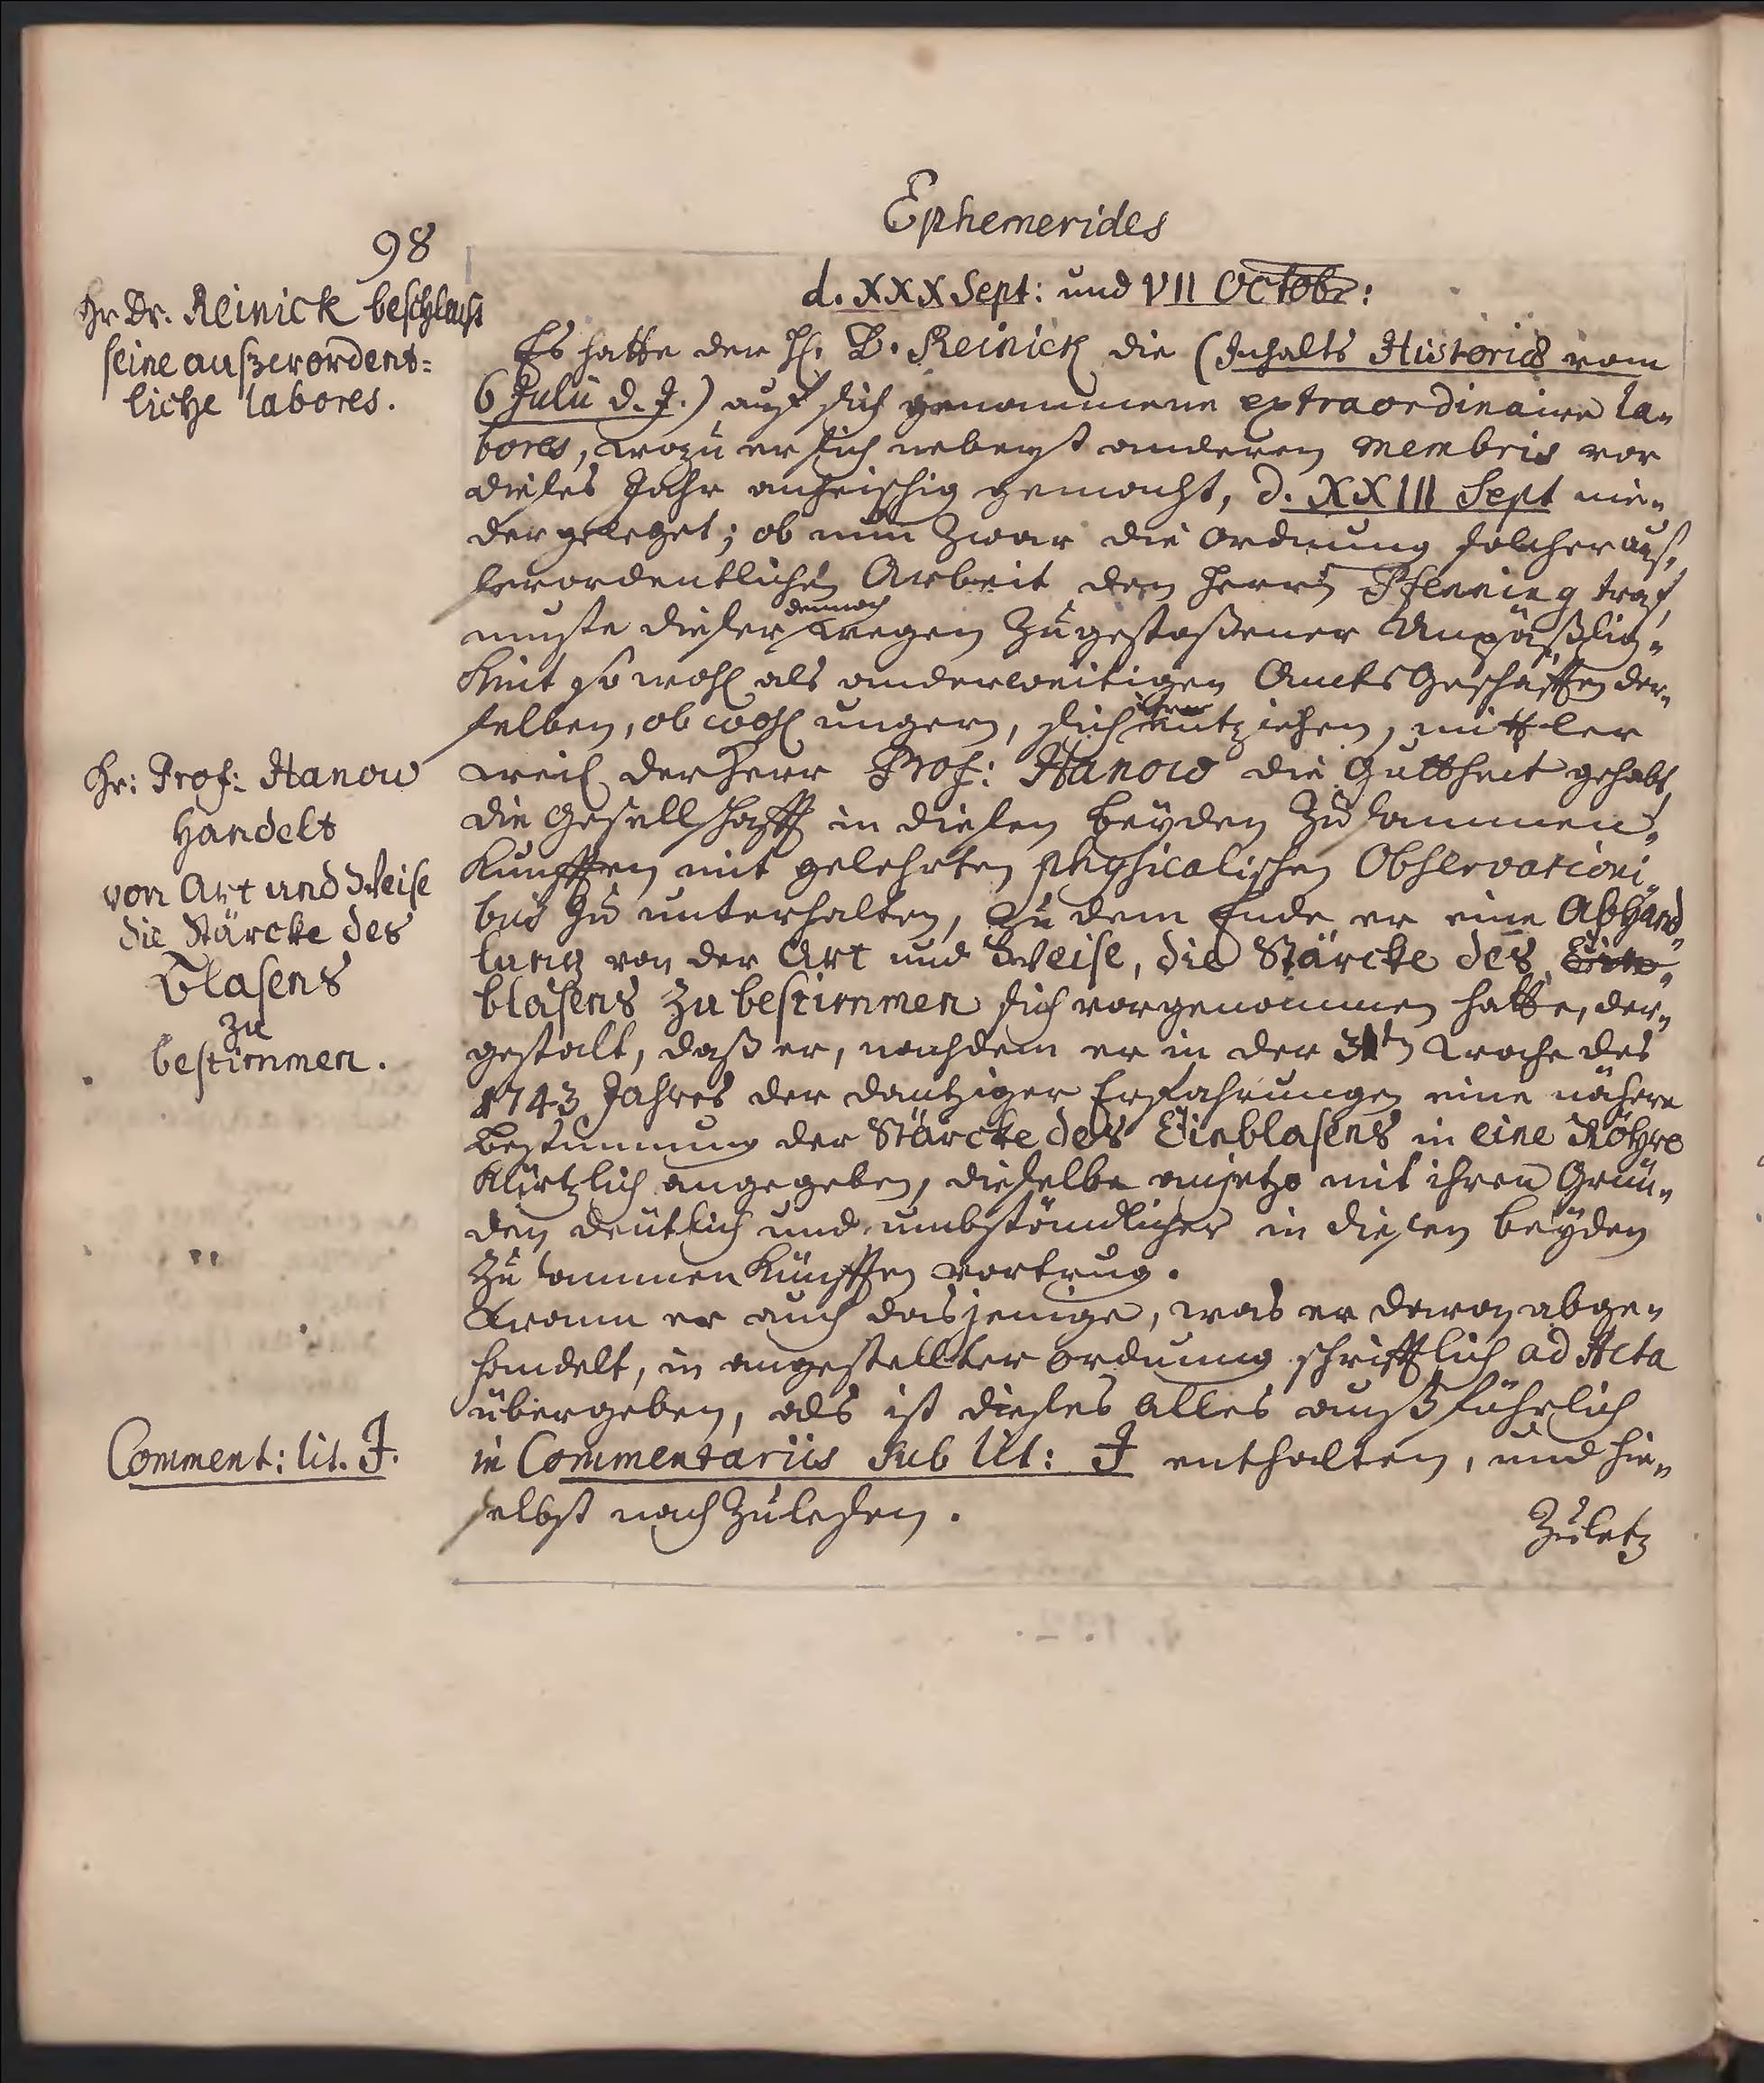 Ephemerides
98
d. XXX Sept: und VII Octobr:
Hr Dr. Reinick beschleußt
seine außerordent=
liche labores.
Es hatte der H. D. Reinick die (Inhalts Historiæ vom
6 Julii d. J.) auf sich genommene extraordinaire la=
bores, wozu er sich nebenst anderen membris vor
dieses Jahr anheischig gemacht, d. XXIII Sept nie=
dergeleget; ob nun zwar die Ordnung solcher auß=
serordentlichen Arbeit den Herrn Pfenning traf,
muste dieser dennoch wegen zugestoßener Unpäßlig=
keit so wohl als anderweitigen Amts Geschäfften der=
selben, ob wohl ungern, sich entziehen, mittler
weil der Herr Prof: Hanow die Güttheit gehabt,
die Gesellschafft in diesen beyden Zusammen=
kunfften mit gelehrten physicalischen Observationi=
bus zu unterhalten, Zu dem Ende er eine Abhand=
lung von der Art und Weise, die Stärcke des Ein=
blasens zu bestimmen sich vorgenommen hatte, der=
gestalt, daß er, nachdem er in der 31ten Woche des
1743 Jahres der Dantziger Erfahrungen eine nähere
Bestimmung der Stärcke des Einblasens in eine Röhre
kürtzlich angegeben, dieselbe anjetzo mit ihren Grün=
den deutlich und umbständlicher in diesen beyden
Zusammenkünfften vortrug.
Wann er auch dasjenige, was er davon abge=
handelt, in angestellter Ordnung schrifftlich ad Acta
übergeben, als ist dieses alles außführlich
in Commentariis sub lit: J enthalten, und hie=
selbst nach zulesen.
Hr: Prof: Hanow
handelt
von Art und Weise
die Stärcke des
Blasens
zu
bestimmen.
Comment: lit. J.
Zuletz